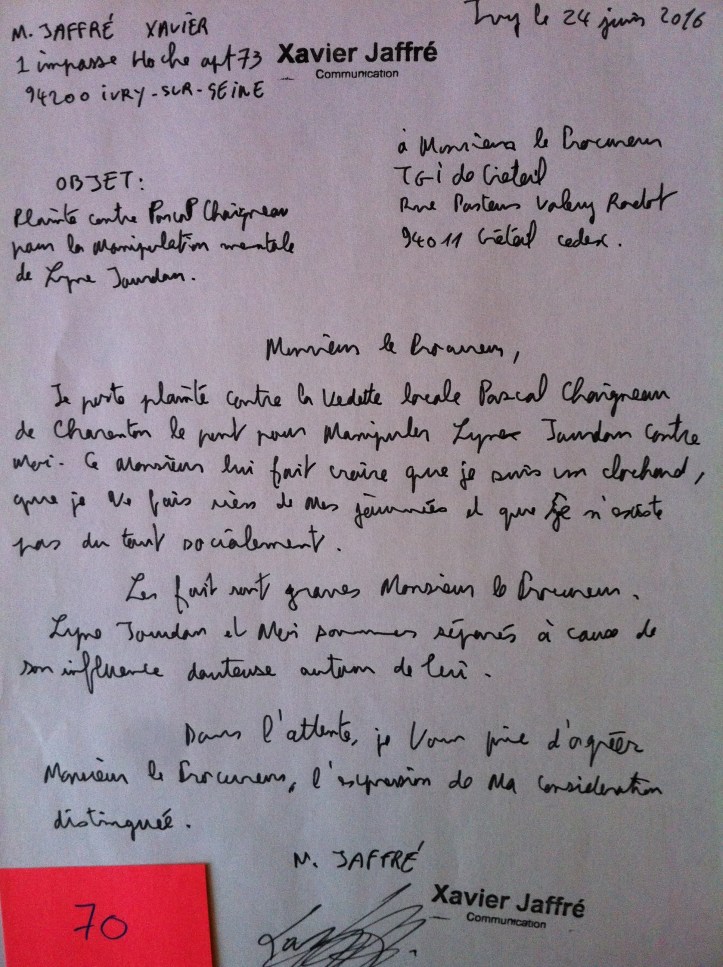 Ivry le 24 juin 2016
M. JAFFRÉ XAVIER
1 impasse Hoche apt 73
94200 iVRY-SUR-SEiNE
Xavier Jaffré
Communication
à Monsieur le Procureur
TGi de Créteil
Rue Pasteur Valery Radot
94011 Créteil cedex.
OBJET:
Plainte contre Pascal Chaigneau
pour la manipulation mentale
de Lyne Jourdan.
Monsieur le Procureur,
Je porte plainte contre la vedette locale Pascal Chaigneau
de Charenton le pont pour Manipuler Lyne Jourdan contre
Moi. Ce Monsieur lui fait croire que je suis un clochard,
que je ne fais rien de mes journées et que je n'existe
pas du tout socialement.
Les fait sont graves Monsieur le Procureur.
Lyne Jourdan et Moi sommes séparés à cause de
son influence douteuse autour de lui.
Dans l'attente, je Vous prie d'agréer
Monsieur le Procureur, l'expression de Ma consideration
distinguée.
M. JAFFRÉ
Xavier Jaffré
Communication
70